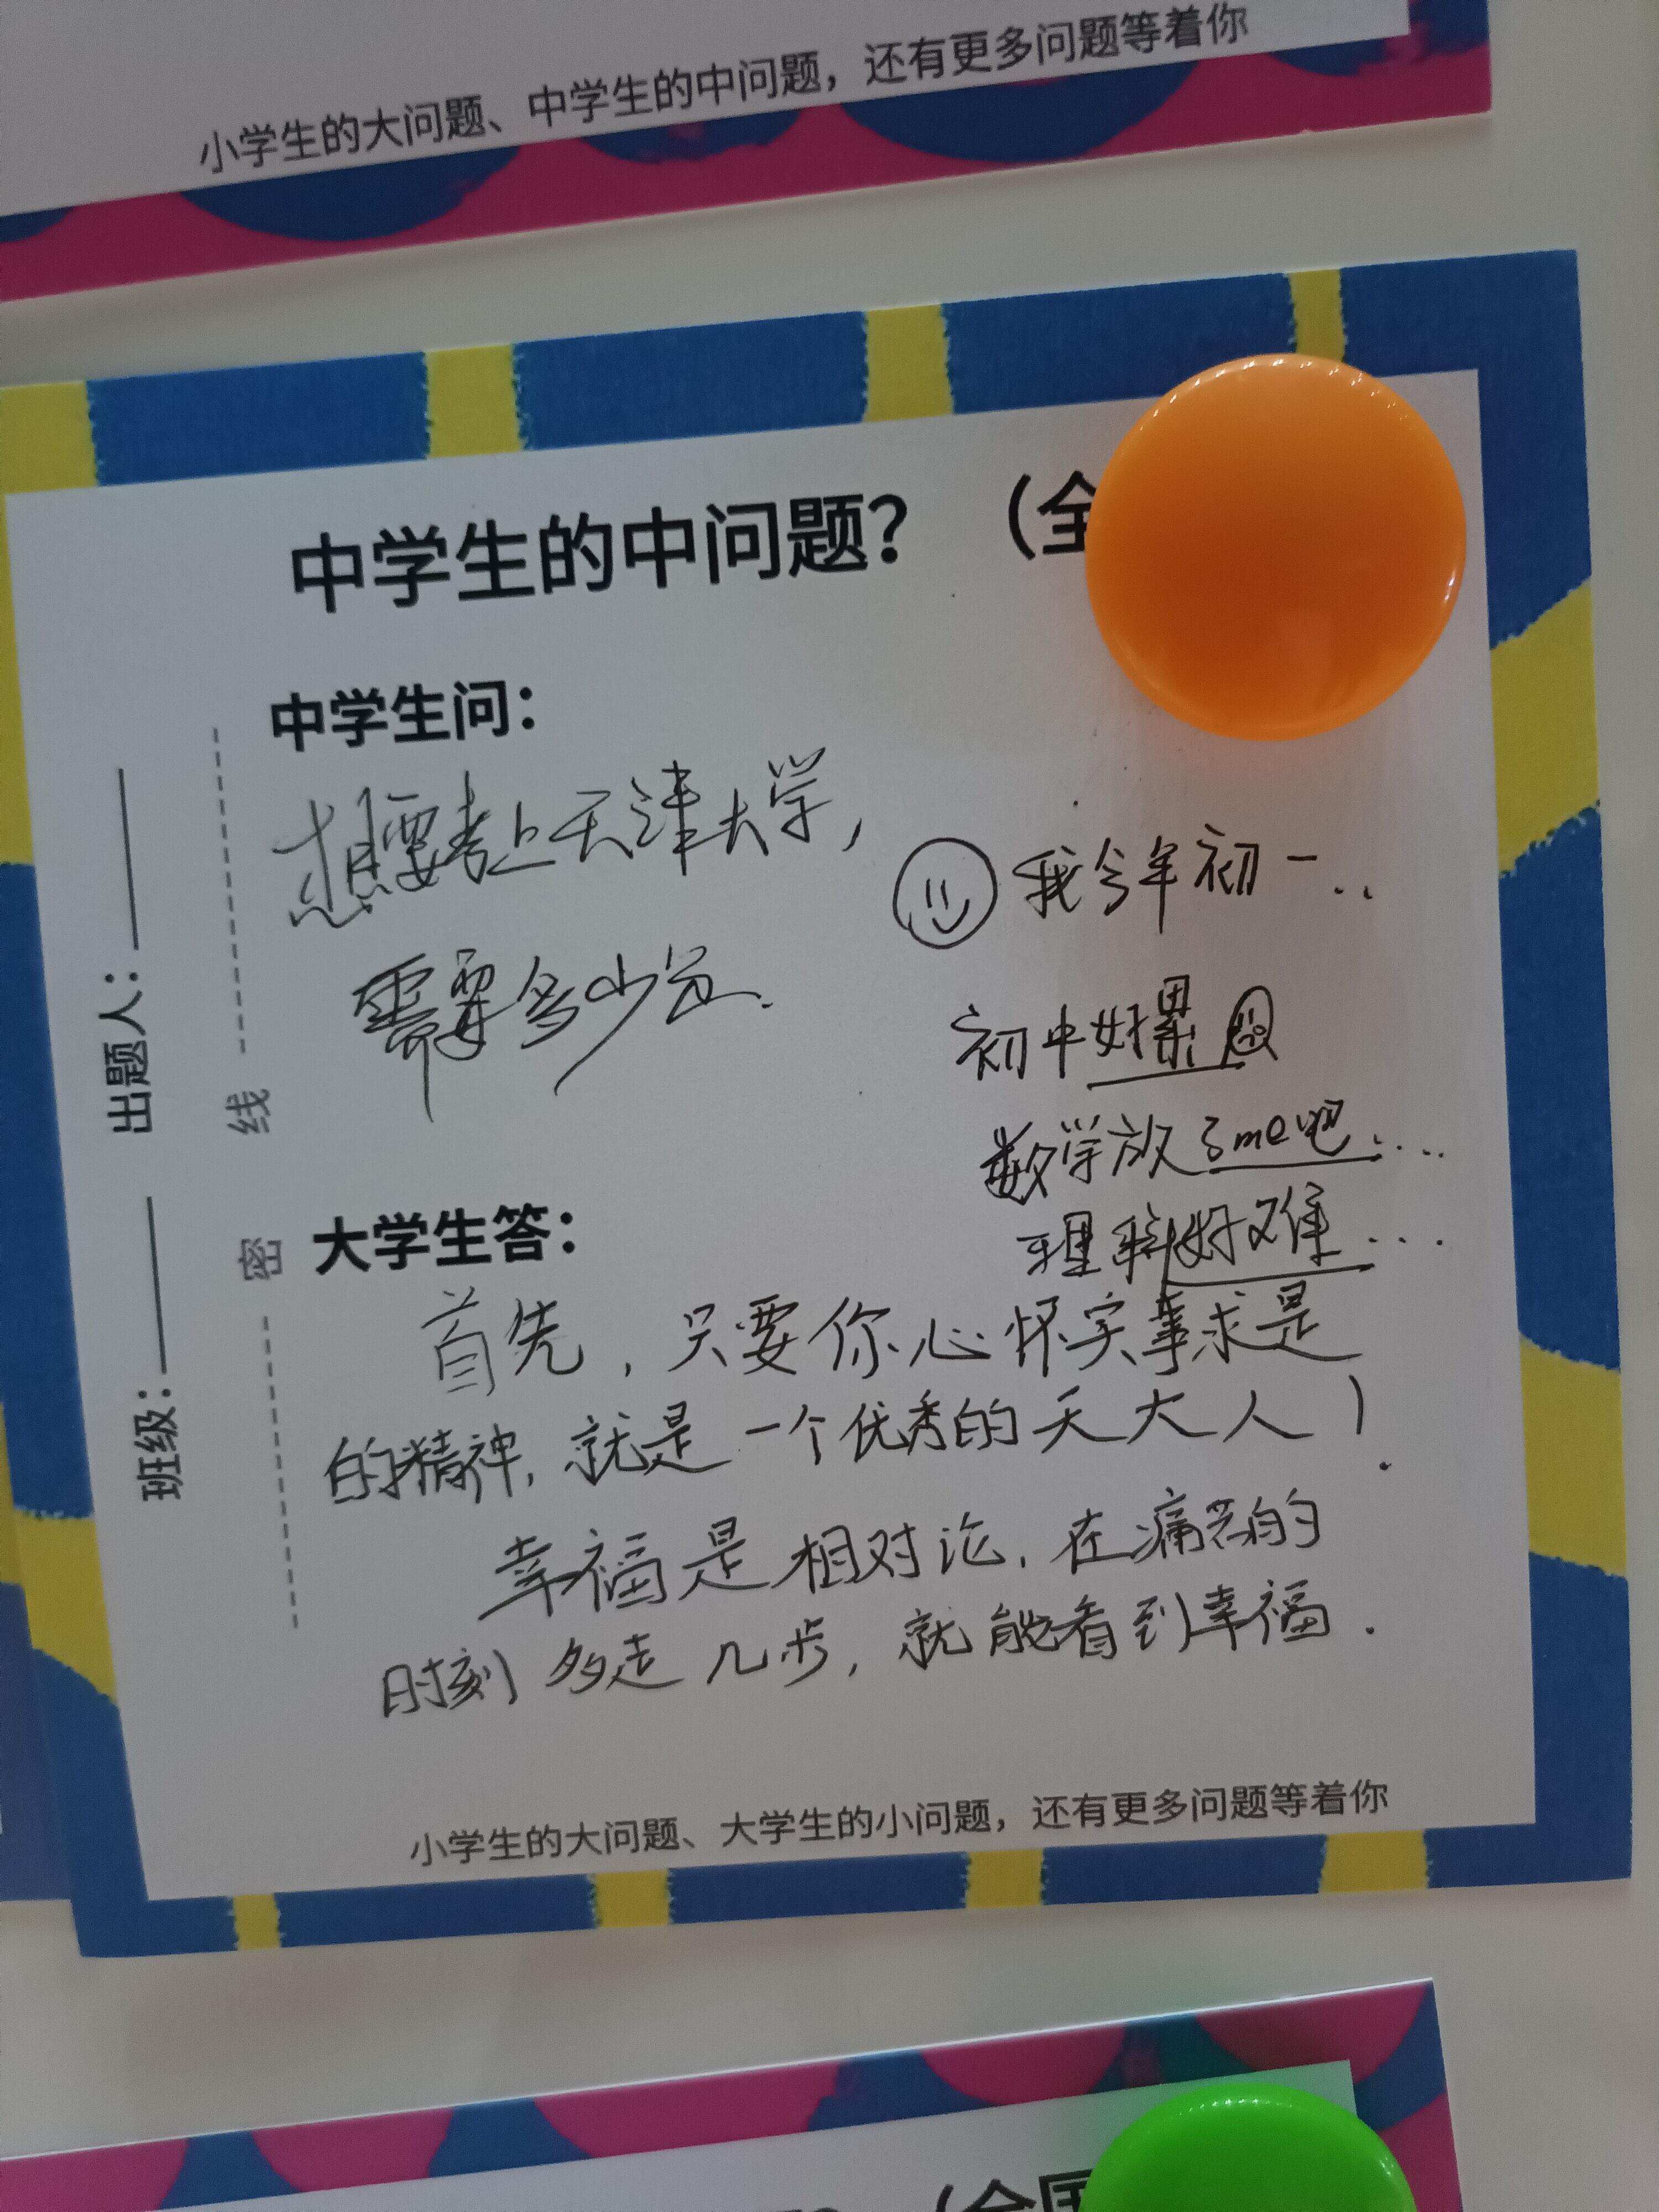 小学生的大问题、中学生的中问题，还有更多问题等着你
中学生的中问题？（全
中学生问：
想要考上天津大学，
需要多少分.
我今年初一..
初中好累
数学放了me吧...
理科好难...
大学生答：
首先，只要你心怀实事求是
的精神，就是一个优秀的天大人！
幸福是相对论，在痛苦的
时刻多走几步，就能看到幸福.
小学生的大问题、大学生的小问题，还有更多问题等着你
班级：
出题人：
密
线
（全国